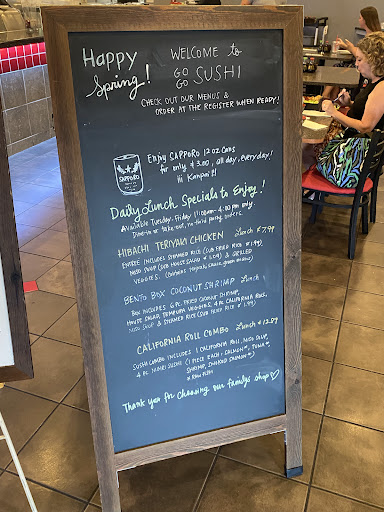 Happy Spring!
WELCOME to
GO GO SUSHI
CHECK OUT OUR MENUS &
ORDER AT THE REGISTER WHEN READY!
SAPPORO
Enjoy SAPPORO 12oz cans
for only $3.00, all day, everyday!
Kanpai!!
Daily Lunch Specials to Enjoy!
Available Tuesday-Friday 11:00am-4:00pm only
Dine-in or take-out, no third party orders.
HIBACHI TERIYAKI CHICKEN Lunch $7.99
ENTREE INCLUDES STEAMED RICE (SUB FRIED RICE
MISO SOUP (SUB HOUSE SALAD & GRILLED
VEGGIES.
BENTO BOX COCONUT SHRIMP Lunch
BOX INCLUDES 6 PC. FRIED COCONUT SHRIMP,
HOUSE SALAD, TEMPURA VEGGIES, 4 PC CALIFORNIA ROLL,
MISO SOUP & STEAMED RICE (SUB FRIED RICE
CALIFORNIA ROLL COMBO Lunch $12.99
SUSHI COMBO INCLUDES 1 CALIFORNIA ROLL, MISO SOUP,
4 PC NIGIRI SUSHI (1 PIECE EACH: SALMON*, TUNA*,
SHRIMP, SMOKED SALMON*)
* RAW FISH
Thank you for choosing our family's shop